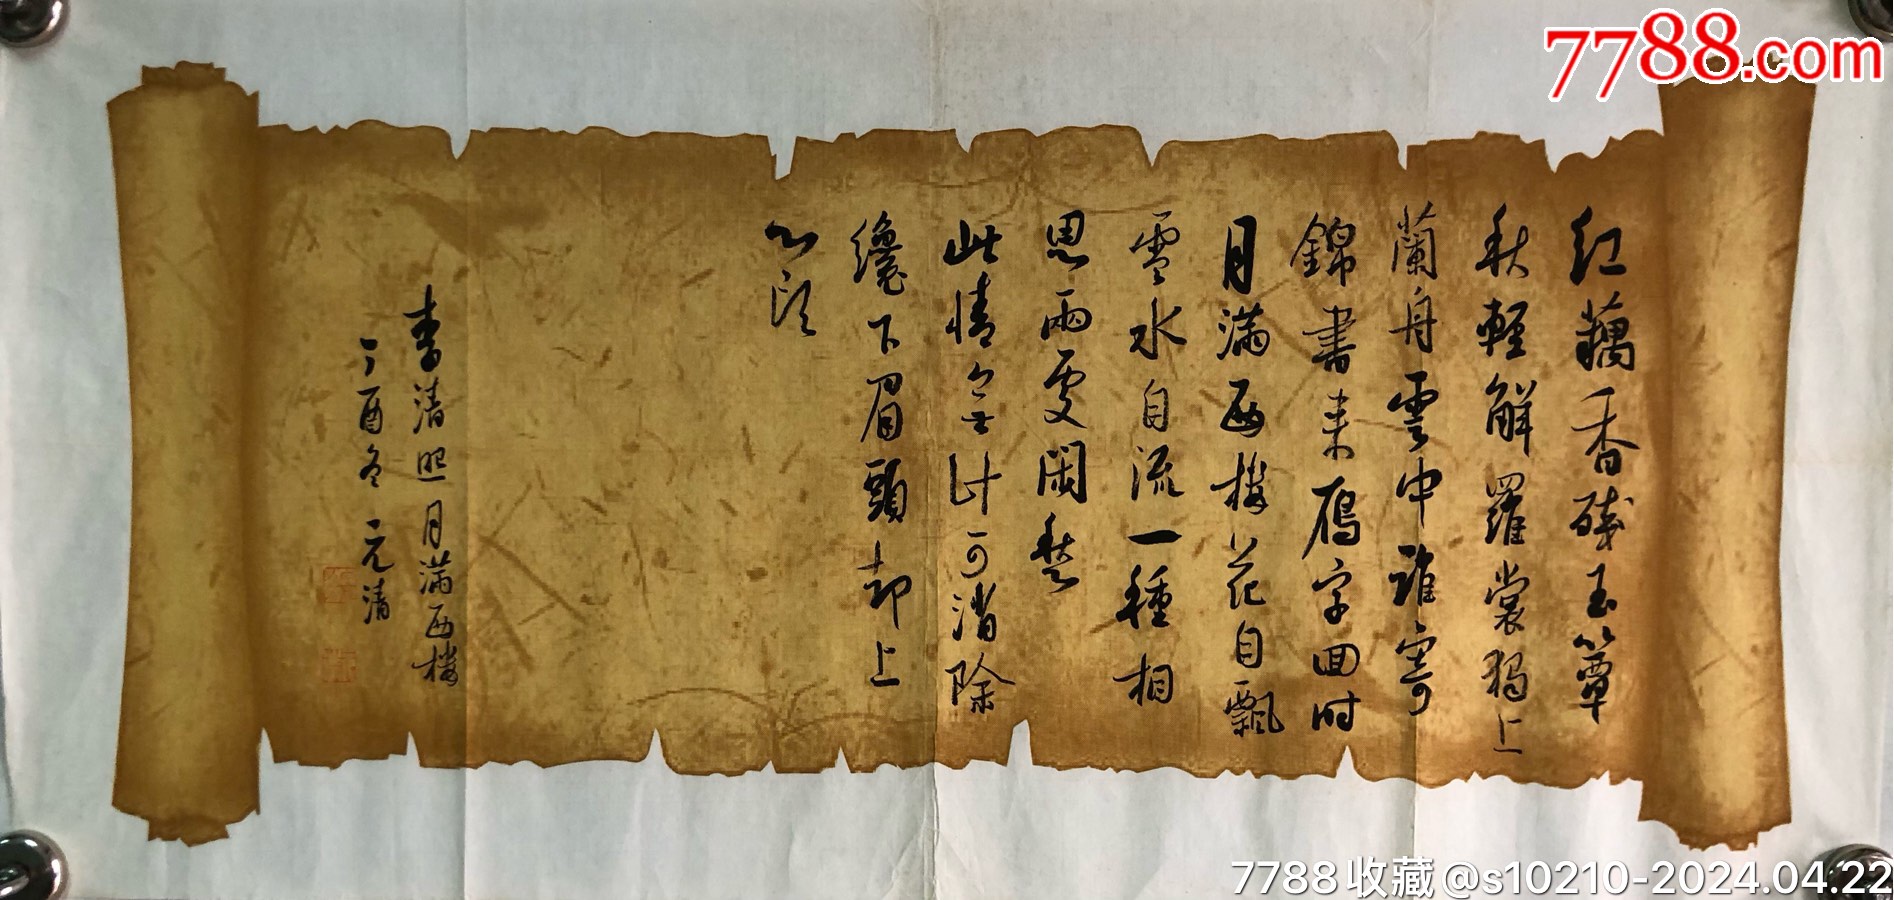 7788.com
紅藕香殘玉簟
秋輕解羅裳獨上
蘭舟雲中誰寄
錦書来雁字回时
月滿西樓花自飄
零水自流一種相
思兩處閑愁
此情無计可消除
纔下眉頭却上
心頭
李清照月滿西樓
丁酉冬 元清
7788收藏@s10210-2024.04.22